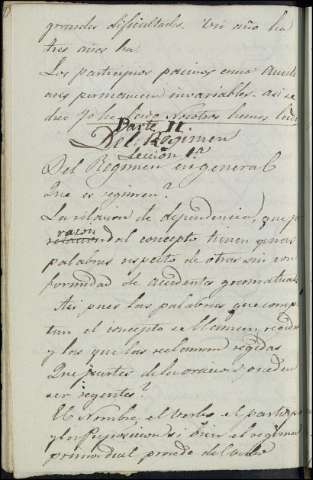 grandes dificultades. Un año ha
tres años ha
Los participios pasivos
nes permanecen invariables. asi se
dice Yo he leido nosotros hemos leido
Parte II.
Del Regimen
Leccion 1ª
Del Regimen en general
Que es regimen?
La relacion de dependencia, que p.r
razon
relacion del concepto tienen
palabras respecto de otras sin con
formidad de accidentes gramaticales
Asi pues las palabras que comp
tan el concepto se llaman
y las que las reclaman regidas
Que partes de la oracion pueden
ser regentes?
El Nombre, el verbo el participio
y la Preposicion si bien el regimen
primordial procede del verbo